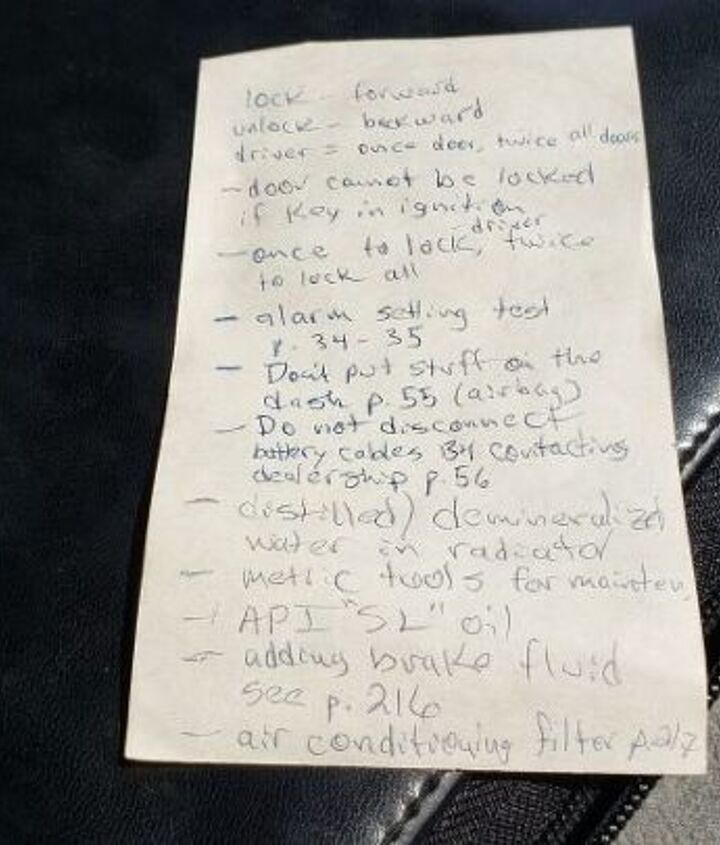 lock - forward
unlock - backward
driver = once door, twice all doors
- door cannot be locked
if key in ignition
- driver
- once to lock, twice
to lock all
- alarm setting test
p. 34-35
- Don't put stuff on the
dash p. 55 (airbag)
- Do not disconnect
battery cables B4 contacting
dealership p. 56
- distilled) demineralized
water in radiator
- metric tools for mainten.
- API "SL" oil
- adding brake fluid
see p. 216
- air conditioning filter p. 217